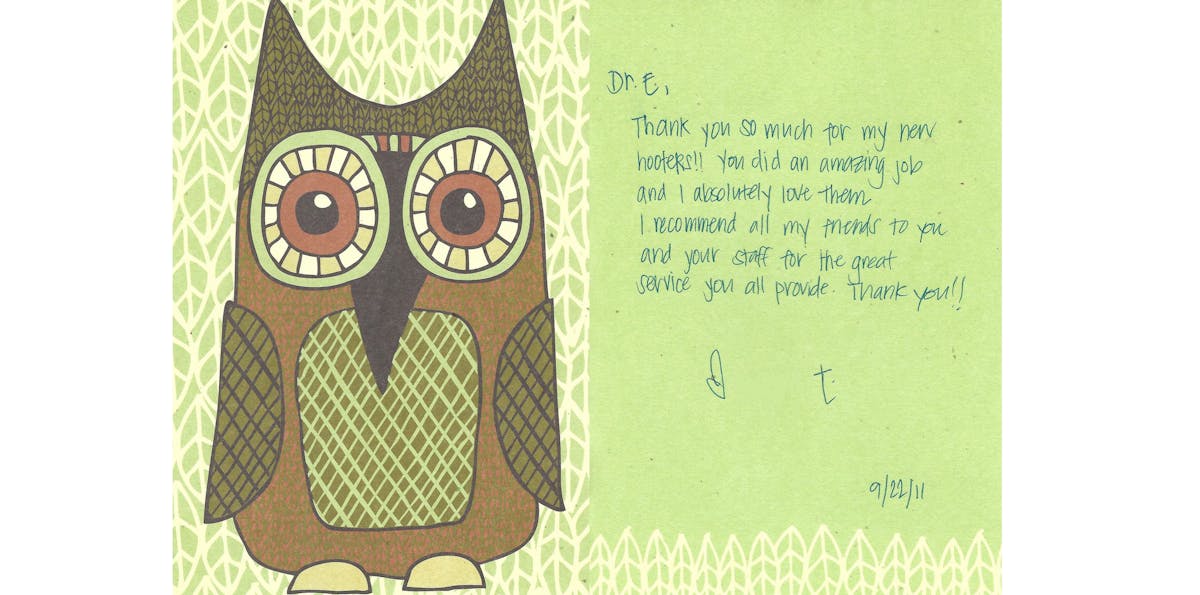 Dr. E,
Thank you so much for my new
hooters!! You did an amazing job
and I absolutely love them
I recommend all my friends to you
and your staff for the great
service you all provide. Thank you!!
t.
9/22/11